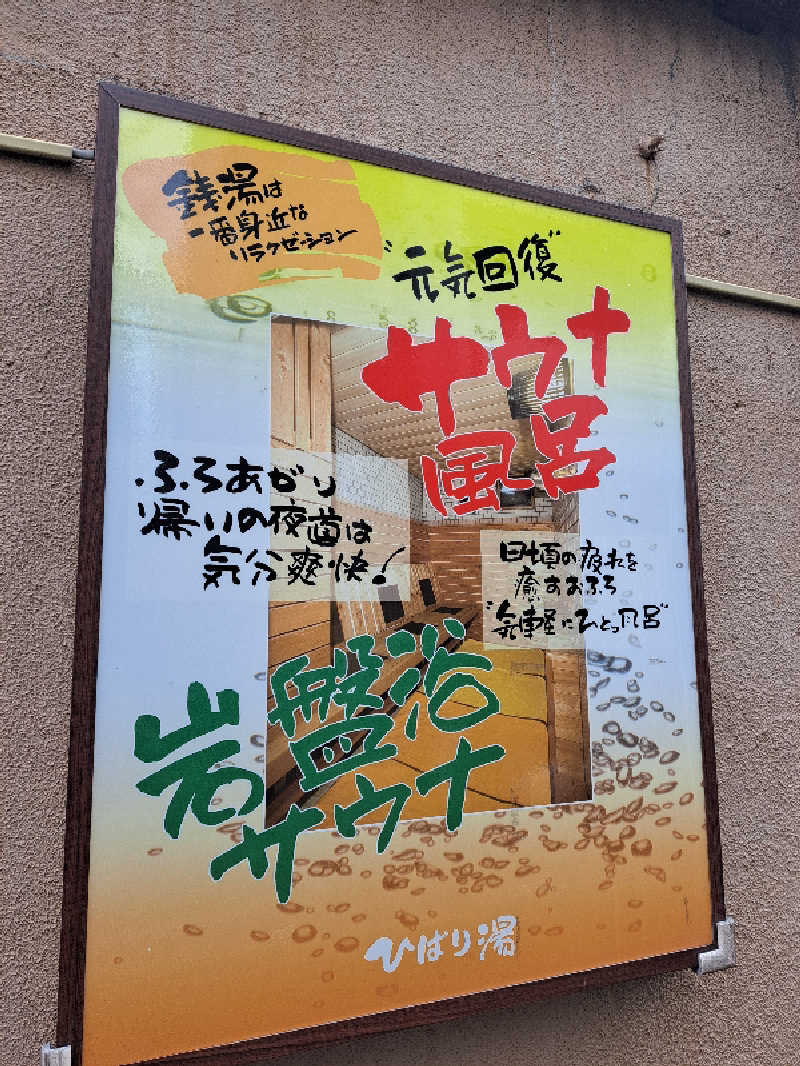 銭湯は
一番身近な
リラクゼーション
"元気回復"
サウナ
風呂
ふろあがり
帰りの夜道は
気分爽快!
日頃の疲れを
癒すおふろ
"気軽にひとっ風呂"
岩盤浴
サウナ
ひばり湯